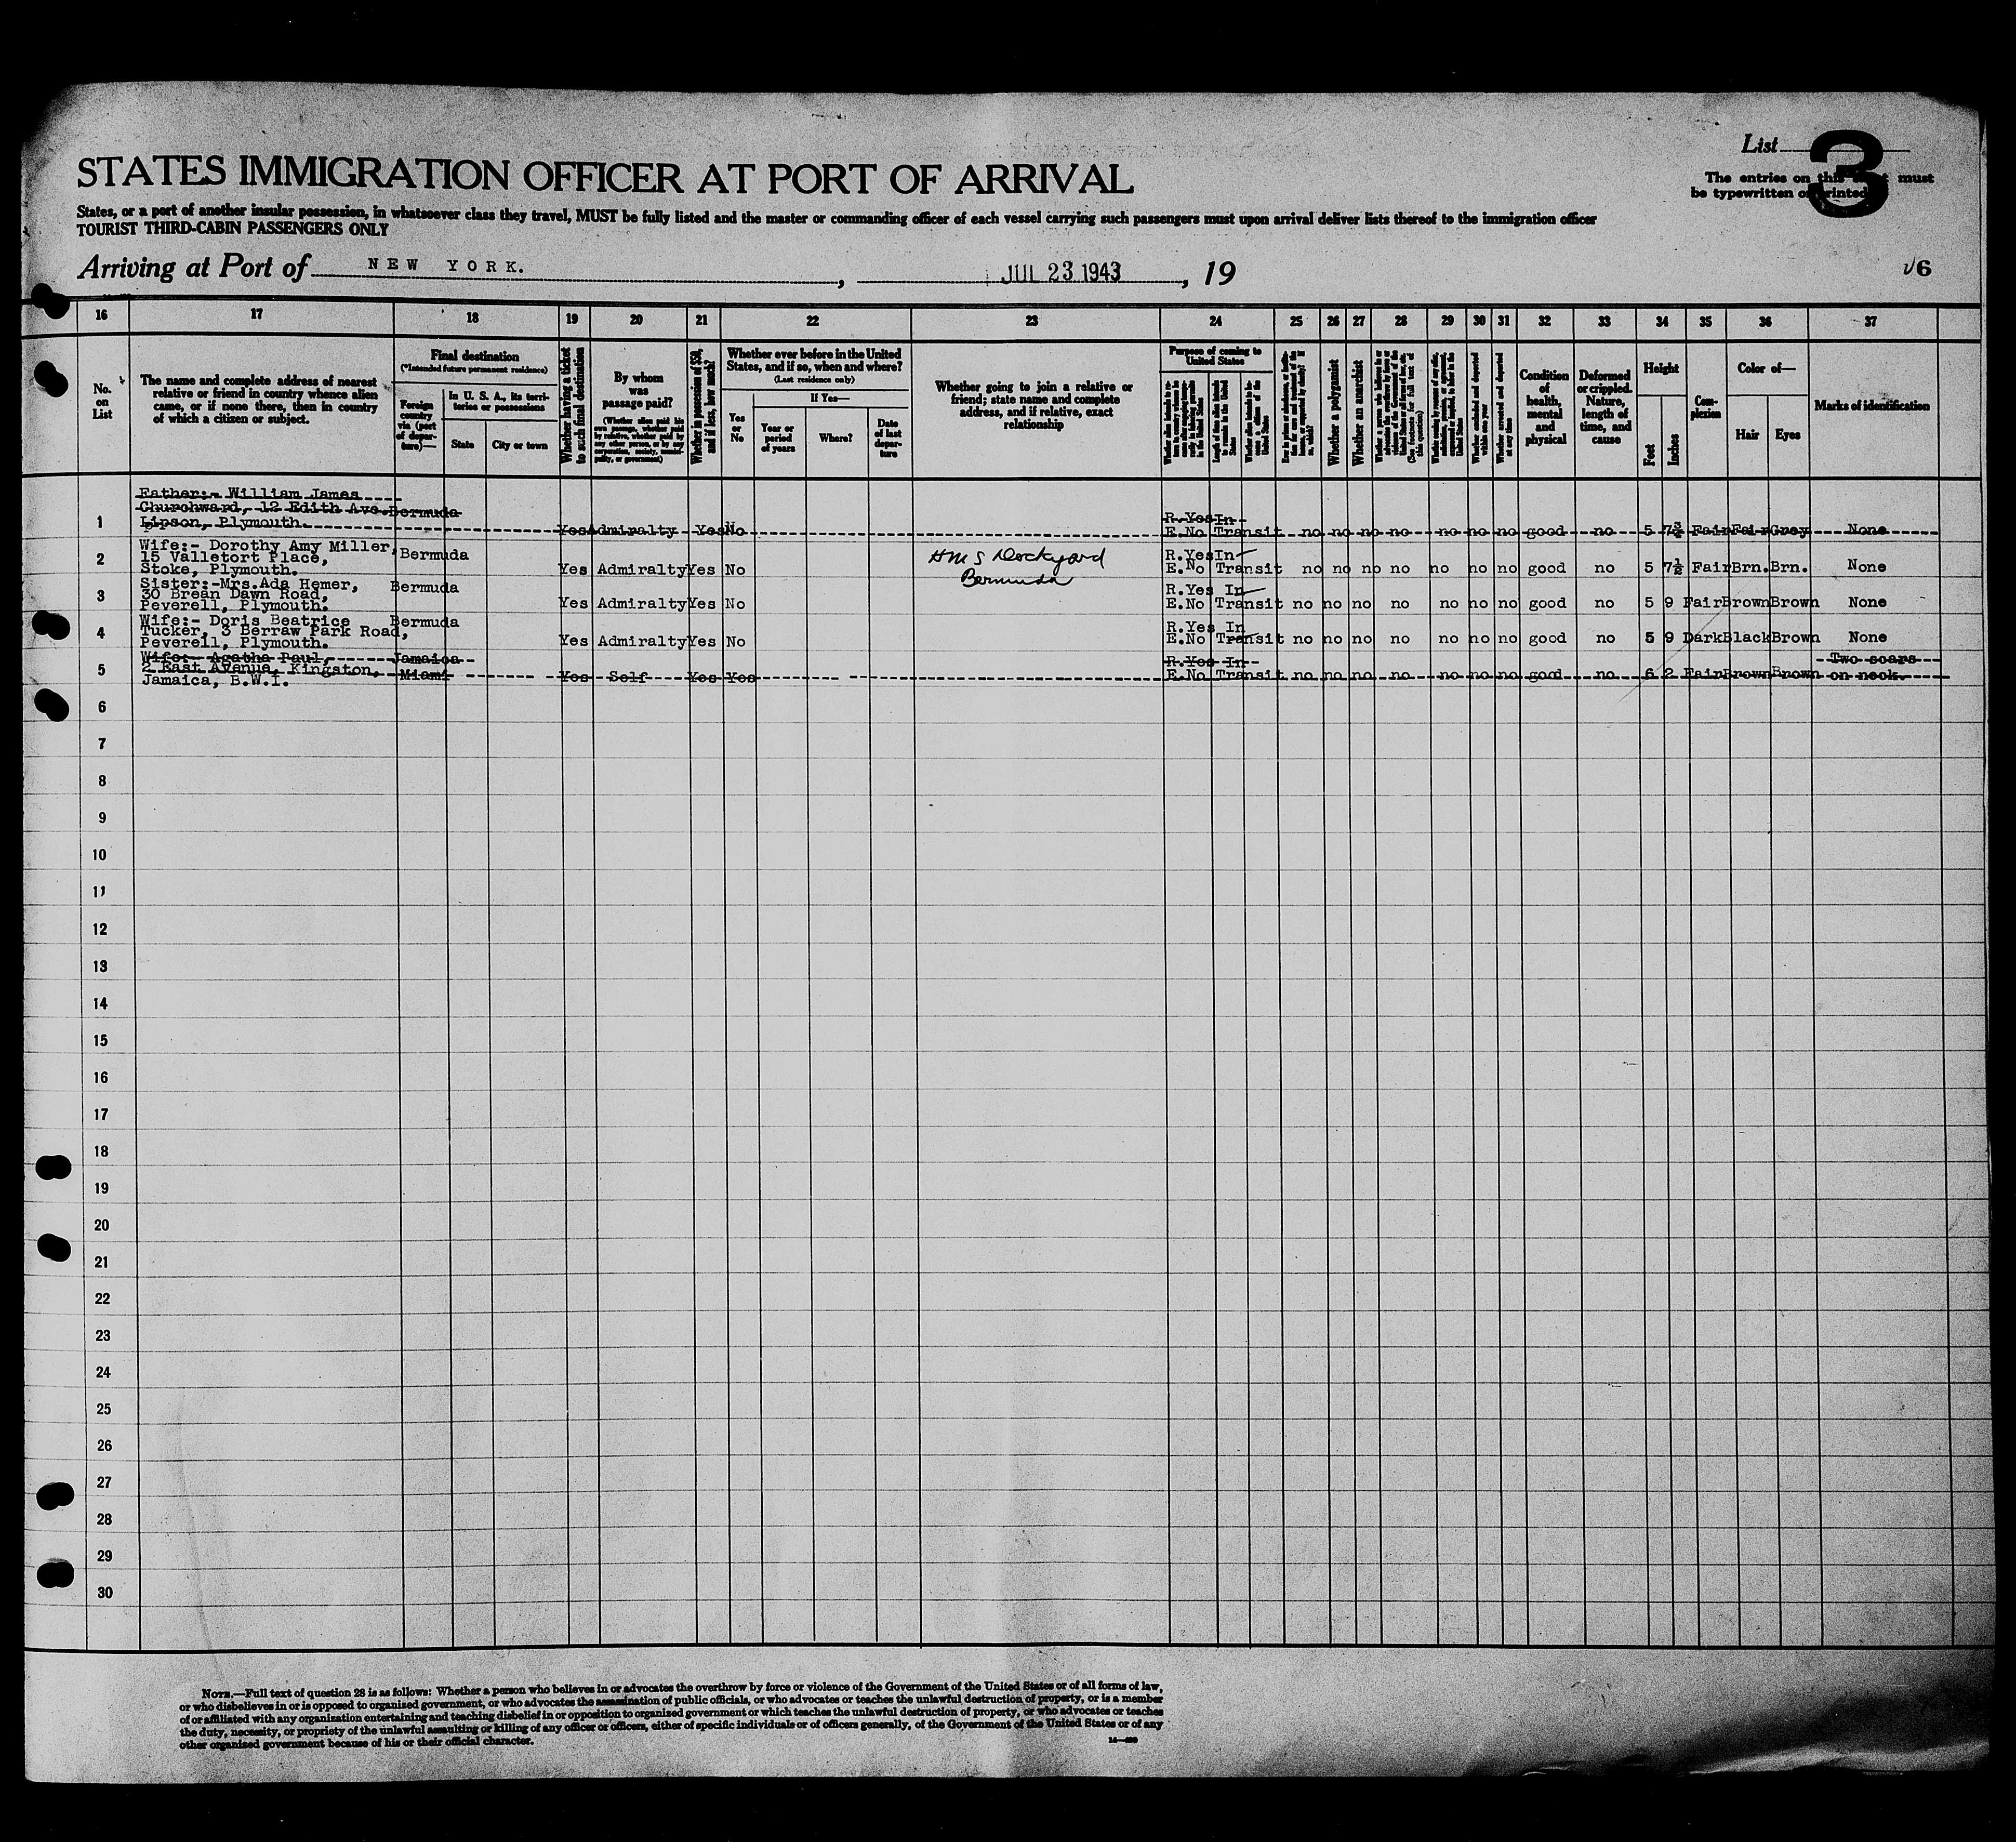 List 3
STATES IMMIGRATION OFFICER AT PORT OF ARRIVAL
The entries on this must
be typewritten or printed
States, or a port of another insular possession, in whatsoever class they travel, MUST be fully listed and the master or commanding officer of each vessel carrying such passengers must upon arrival deliver lists thereof to the immigration officer
TOURIST THIRD-CABIN PASSENGERS ONLY
Arriving at Port of NEW YORK. , JUL 23 1943 , 19
6
16 17 18 19 20 21 22 23 24 25 26 27 28 29 30 31 32 33 34 35 36 37
No. on List
The name and complete address of nearest
relative or friend in country whence alien
came, or if none there, then in country
of which a citizen or subject.
Final destination
(*Intended future permanent residence)
Foreign country via (port of departure)—
In U. S. A., its territories or possessions
State
City or town
Whether having a ticket to such final destination
By whom was passage paid?
(Whether alien paid his own passage, whether paid by relative, whether paid by any other person, or by any corporation, society, municipality, or government)
Whether in possession of $50, and if less, how much?
Whether ever before in the United
States, and if so, when and where?
(Last residence only)
Yes or No
If Yes—
Year or period of years
Where?
Date of last departure
Whether going to join a relative or
friend; state name and complete
address, and if relative, exact
relationship
Purpose of coming to United States
Whether a polygamist
Whether an anarchist
Condition of health, mental and physical
Deformed or crippled. Nature, length of time, and cause
Height
Feet
Inches
Complexion
Color of—
Hair
Eyes
Marks of identification
Father:- William James
Churchward, 12 Edith Ave. Bermuda
Lipson, Plymouth.
1 Yes Admiralty Yes No R.Yes In E.No Transit no no no no no no no good no 5 7¾ Fair Fair Grey None
Wife:- Dorothy Amy Miller,
15 Valletort Place, Bermuda
Stoke, Plymouth.
2 Yes Admiralty Yes No HMS Dockyard Bermuda R.Yes In E.No Transit no no no no no no no good no 5 7½ Fair Brn. Brn. None
Sister:-Mrs.Ada Hemer, Bermuda
30 Brean Dawn Road,
Peverell, Plymouth.
3 Yes Admiralty Yes No R.Yes In E.No Transit no no no no no no no good no 5 9 Fair Brown Brown None
Wife:- Doris Beatrice Bermuda
Tucker, 3 Berraw Park Road,
Peverell, Plymouth.
4 Yes Admiralty Yes No R.Yes In E.No Transit no no no no no no no good no 5 9 Dark Black Brown None
Wife:- Agatha Paul, Jamaica
2 East Avenue, Kingston, Miami
Jamaica, B.W.I.
5 Yes Self Yes Yes R.Yes In E.No Transit no no no no no no no good no 6 2 Fair Brown Brown Two scars on neck.
6
7
8
9
10
11
12
13
14
15
16
17
18
19
20
21
22
23
24
25
26
27
28
29
30
NOTE.—Full text of question 28 is as follows: Whether a person who believes in or advocates the overthrow by force or violence of the Government of the United States or of all forms of law,
or who disbelieves in or is opposed to organized government, or who advocates the assassination of public officials, or who advocates or teaches the unlawful destruction of property, or is a member
of or affiliated with any organization entertaining and teaching disbelief in or opposition to organized government or which teaches the unlawful destruction of property, or who advocates or teaches
the duty, necessity, or propriety of the unlawful assaulting or killing of any officer or officers, either of specific individuals or of officers generally, of the Government of the United States or of any
other organized government because of his or their official character.